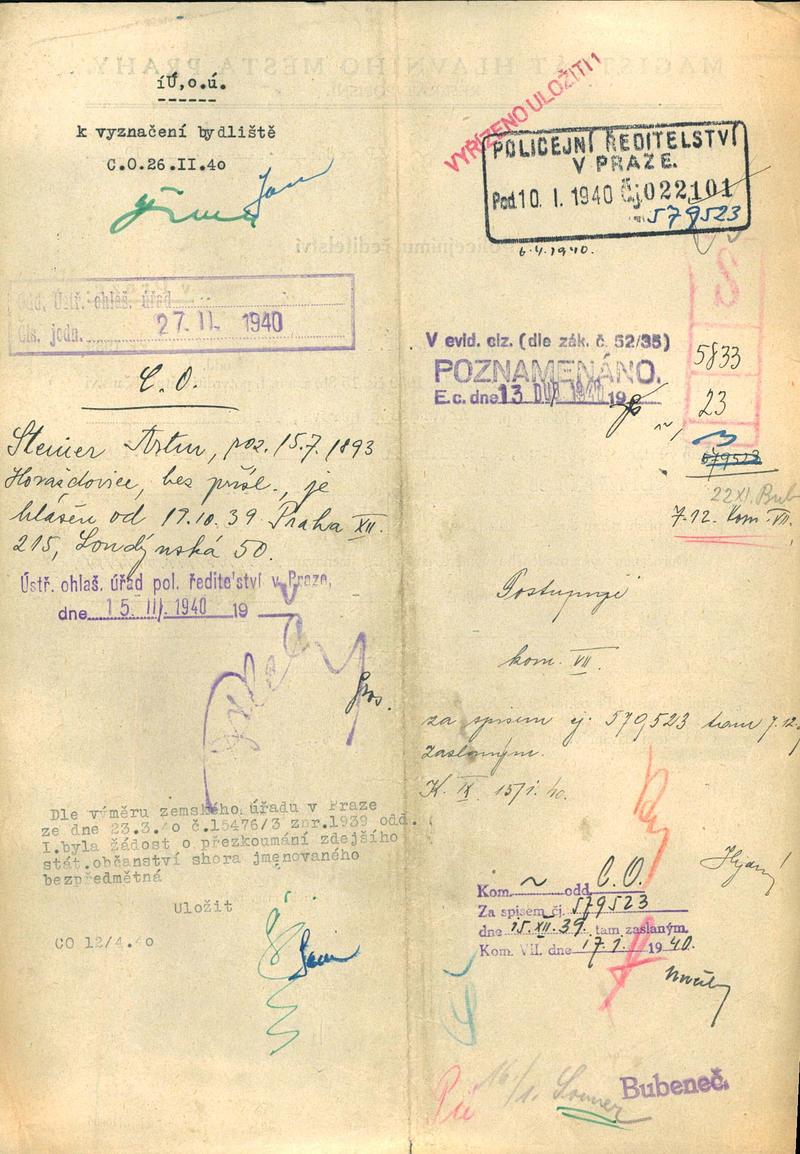 íÚ,o.ú.
k vyznačení bydliště
C.O.26.II.4o
Odd. Ústř. ohlaš. úřad
Čís. jedn. 27. II. 1940
C. O.
Steiner Artur, nar. 15.7. 1893
Horažďovice, bez přísl., je
hlášen od 19.10.39 Praha XII.
215, Londýnská 50.
Ústř. ohlaš. úřad pol. ředitelství v Praze,
dne 15. III. 1940 19
Dle výměru zemského úřadu v Praze
ze dne 23.3.4o č.15476/3 znr.1939 odd.
I.byla žádost o přezkoumání zdejšího
stát.občanství shora jmenovaného
bezpředmětná
Uložit
CO 12/4.4o
VYŘÍZENO ULOŽITI!
POLICEJNÍ ŘEDITELSTVÍ
V PRAZE.
Pod. 10. I. 1940 Čj. 022101
579523
6.4.1940.
V evid. ciz. (dle zák. č. 52/35)
POZNAMENÁNO.
E.c. dne 13. DUB. 1940 19
5833
23
579523
22 XI. Bub
7.12. Kom. VII.
Postupuji
kom. VII.
za spisem čj. 579523 tam 7.12.
zaslaným.
K. IX. 15/1. 40.
Kom. odd. C.O.
Za spisem čj. 579523
dne 15. XII. 39. tam zaslaným.
Kom. VII. dne 17.1. 1940.
16/1.
Bubeneč.